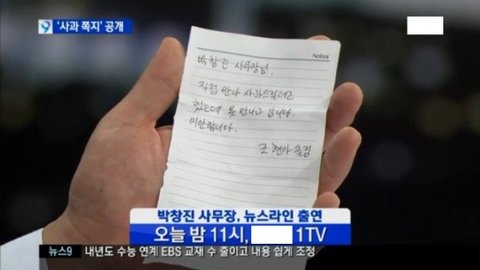 '사과 쪽지' 공개
Notes
박창진 사무장님,
직접 만나 사과드릴려고
했는데 못 만나고 갑니다.
미안합니다.
조현아 올림
박창진 사무장, 뉴스라인 출연
오늘 밤 11시, 1TV
뉴스9 내년도 수능 연계 EBS 교재 수 줄이고 내용 쉽게 조정